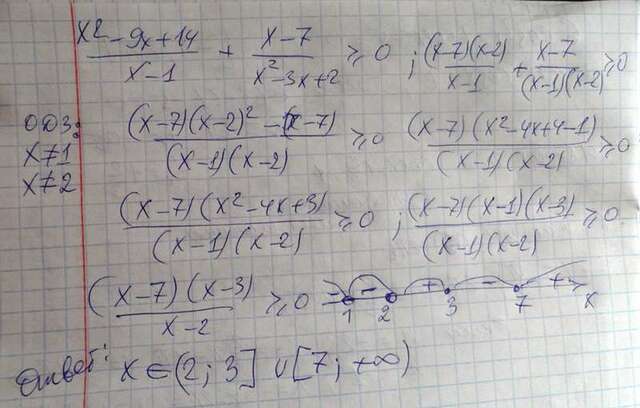 x² - 9x + 14 / x - 1 + x - 7 / x² - 3x + 2 ≥ 0 ; (x-7)(x-2) / x-1 + x-7 / (x-1)(x-2) ≥ 0
ОДЗ:
x≠1
x≠2
(x-7)(x-2)² - (x-7) / (x-1)(x-2) ≥ 0 (x-7)(x²-4x+4-1) / (x-1)(x-2) ≥ 0
(x-7)(x²-4x+3) / (x-1)(x-2) ≥ 0 ; (x-7)(x-1)(x-3) / (x-1)(x-2) ≥ 0
(x-7)(x-3) / x-2 ≥ 0 - - + - + 1 2 3 7 x
Ответ: x ∈ (2; 3] ∪ [7; +∞)